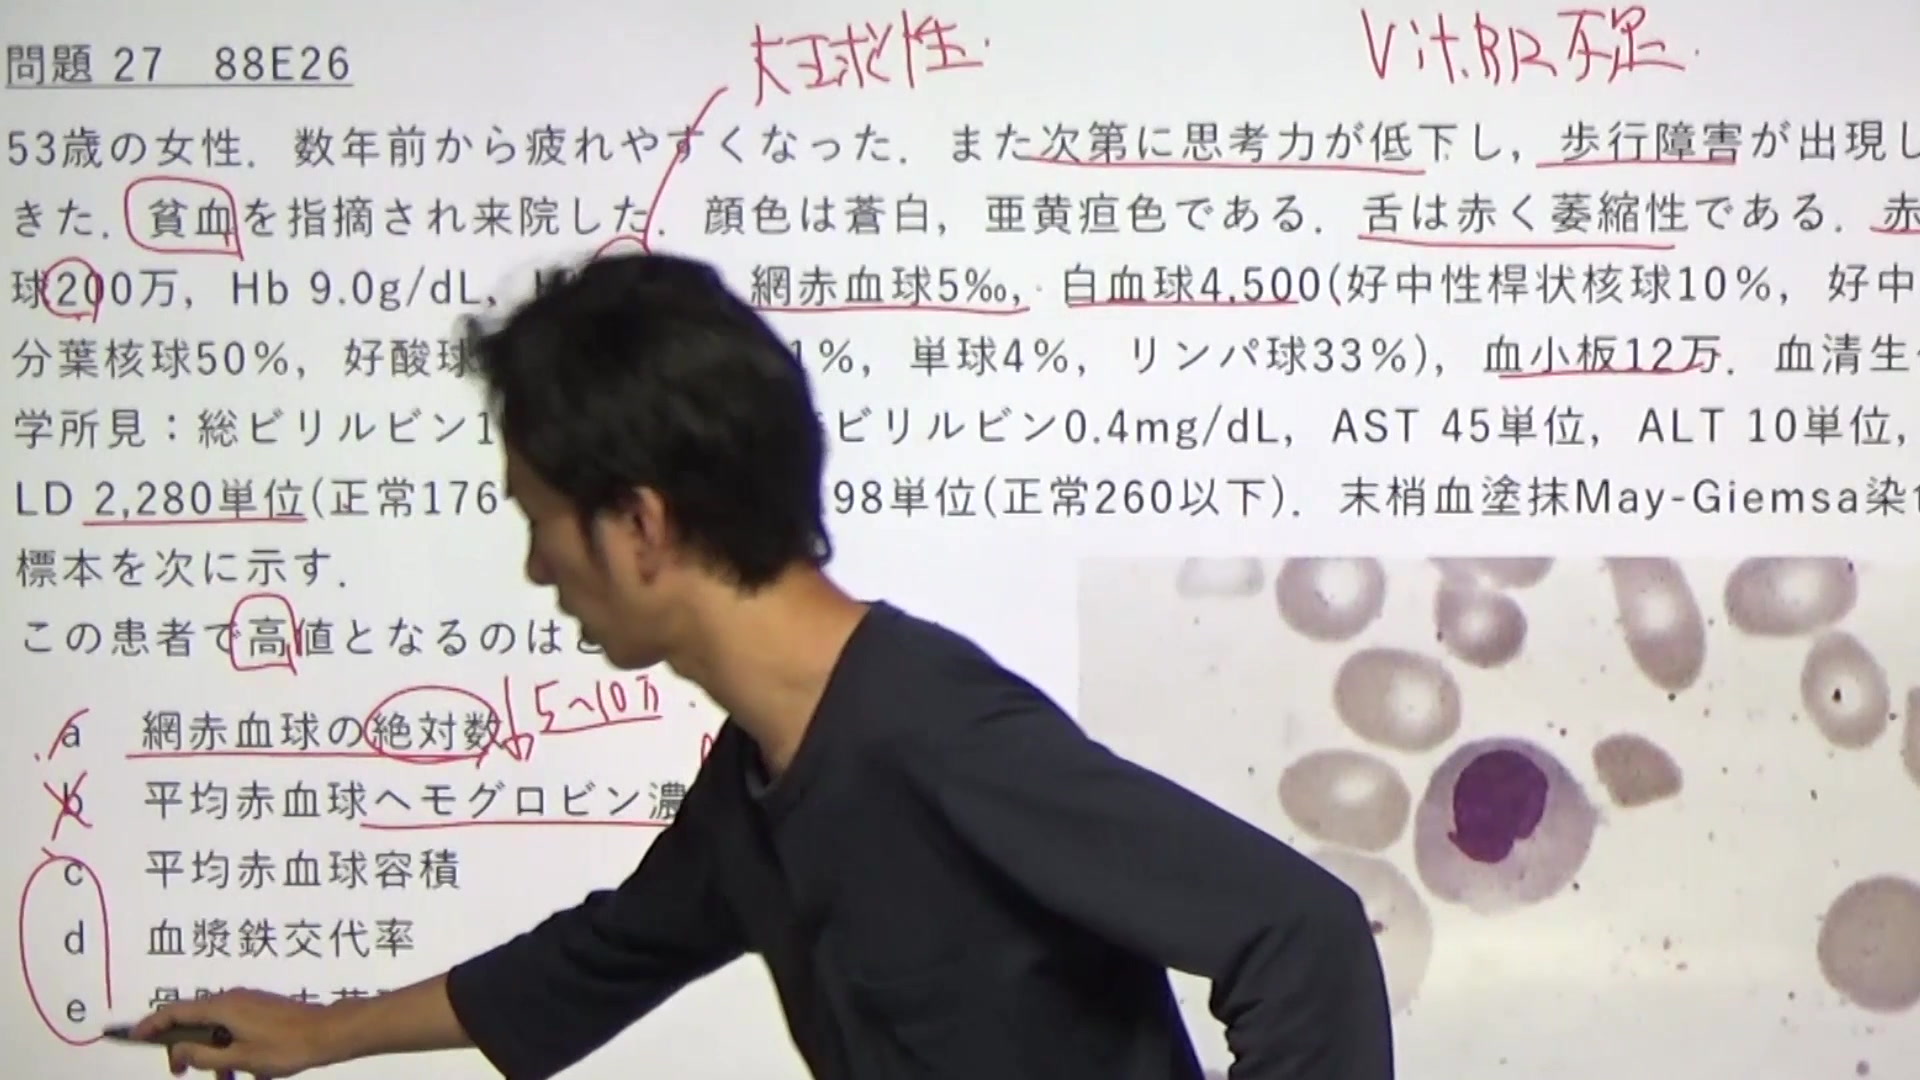 問題 27 88E26
大球性.
Vit.B12 不足.
53歳の女性．数年前から疲れやすくなった．また次第に思考力が低下し，歩行障害が出現し
きた．貧血を指摘され来院した．顔色は蒼白，亜黄疸色である．舌は赤く萎縮性である．赤
球200万，Hb 9.0g/dL， 網赤血球5‰，白血球4,500(好中性桿状核球10％，好中
分葉核球50％，好酸球 1％，単球4％，リンパ球33％)，血小板12万．血清生
学所見：総ビリルビン1 ビリルビン0.4mg/dL，AST 45単位，ALT 10単位，
LD 2,280単位(正常176 98単位(正常260以下)．末梢血塗抹May-Giemsa染
標本を次に示す．
この患者で高値となるのは
a 網赤血球の絶対数 ↓ 5〜10万
b 平均赤血球ヘモグロビン濃
c 平均赤血球容積
d 血漿鉄交代率
e